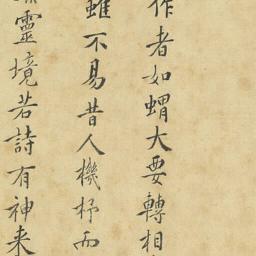 作者如蝟大要轉相
雖不易昔人機杼而
靈境若詩有神来